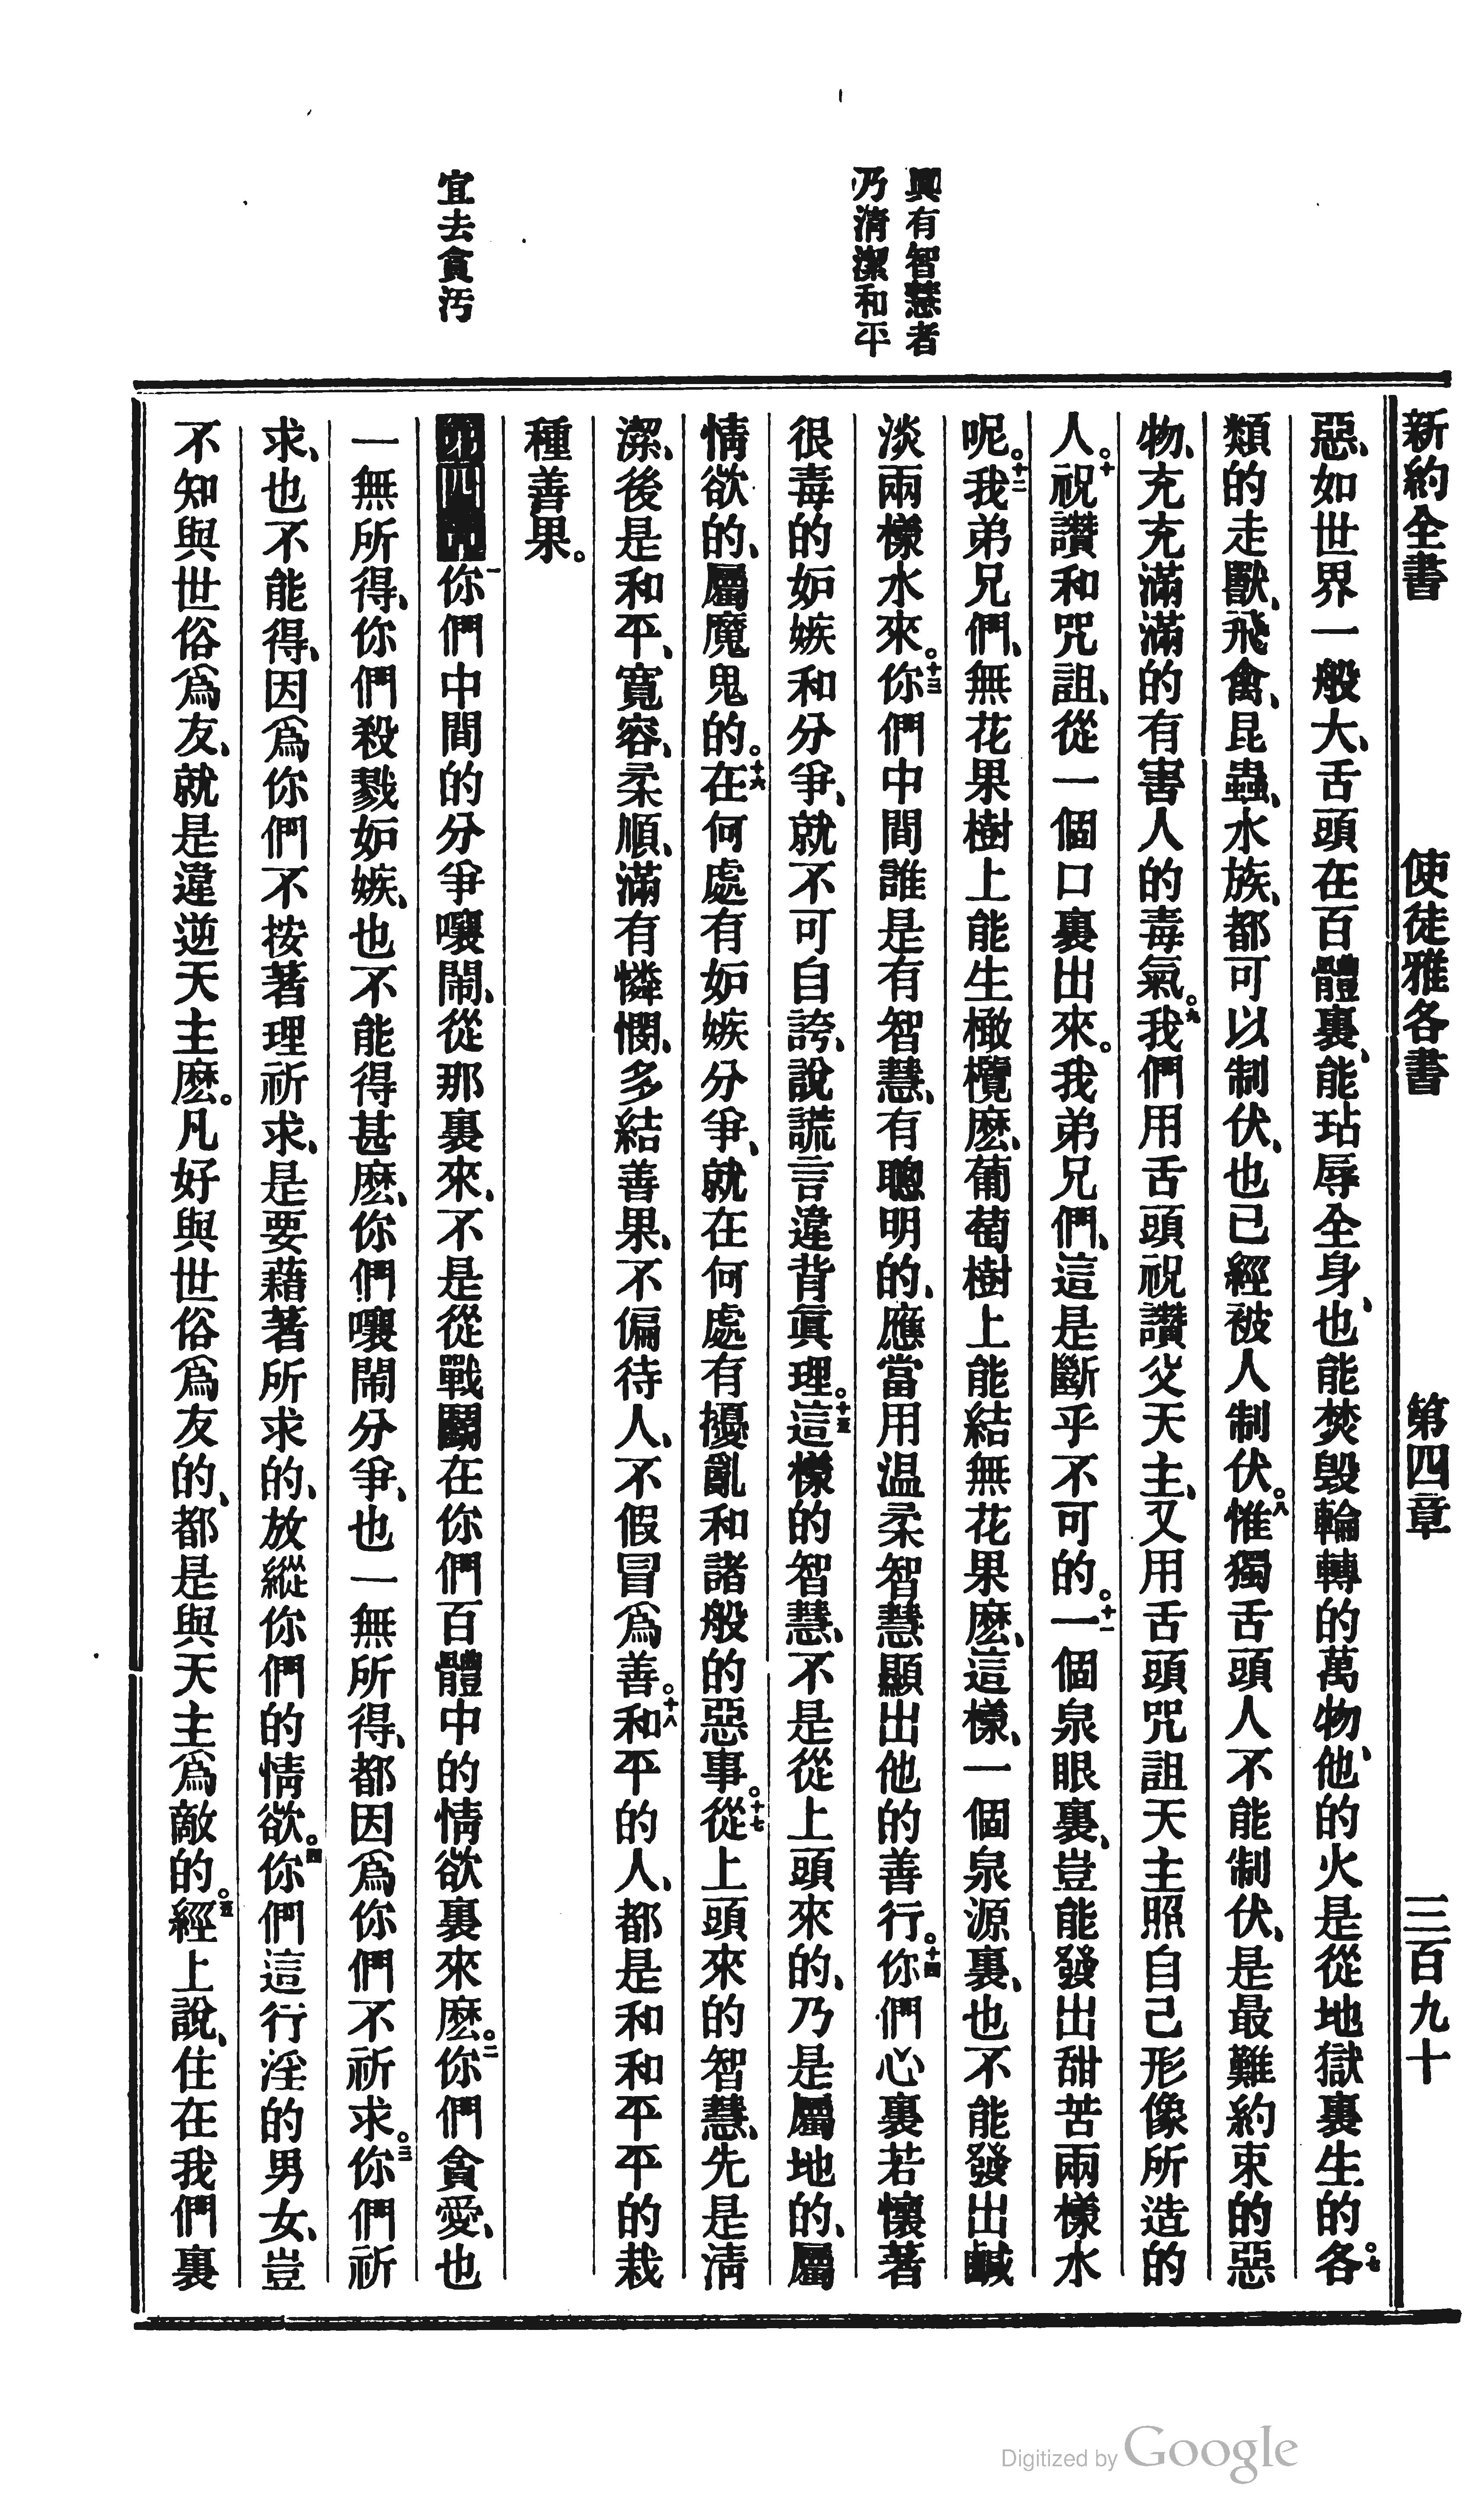 新約全書 使徒雅各書 第四章 三百九十
惡、如世界一般大、舌頭在百體裏、能玷辱全身、也能焚毀輪轉的萬物、他的火是從地獄裏生的。七各
類的走獸、飛禽、昆蟲、水族、都可以制伏、也已經被人制伏。八惟獨舌頭人不能制伏、是最難約束的惡
物、充充滿滿的有害人的毒氣。九我們用舌頭祝讚父天主、又用舌頭咒詛天主照自己形像所造的
人。十祝讚和咒詛、從一個口裏出來。我弟兄們、這是斷乎不可的。十一一個泉眼裏、豈能發出甜苦兩樣水
呢。十二我弟兄們、無花果樹上能生橄欖麽、葡萄樹上能結無花果麽、這樣、一個泉源裏、也不能發出鹹
淡兩樣水來。十三你們中間誰是有智慧、有聰明的、應當用温柔智慧顯出他的善行。十四你們心裏若懷著
很毒的妒嫉和分爭、就不可自誇、說謊言違背眞理。十五這樣的智慧、不是從上頭來的、乃是屬地的、屬
情欲的、屬魔鬼的。十六在何處有妒嫉分爭、就在何處有擾亂和諸般的惡事。十七從上頭來的智慧、先是淸
潔、後是和平、寬容、柔順、滿有憐憫、多結善果、不偏待人、不假冒爲善。十八和平的人、都是和和平平的栽
種善果。
興有智慧者
乃清潔和平
第四章一你們中間的分爭嚷鬧、從那裏來、不是從戰鬬在你們百體中的情欲裏來麽。二你們貪愛、也
一無所得、你們殺戮妒嫉、也不能得甚麽、你們嚷鬧分爭、也一無所得、都因爲你們不祈求。三你們祈
求、也不能得、因爲你們不按著理祈求、是要藉著所求的、放縱你們的情欲。四你們這行淫的男女、豈
不知與世俗爲友、就是違逆天主麽。凡好與世俗爲友的、都是與天主爲敵的。五經上說、住在我們裏
宜去貪汚
Digitized by Google